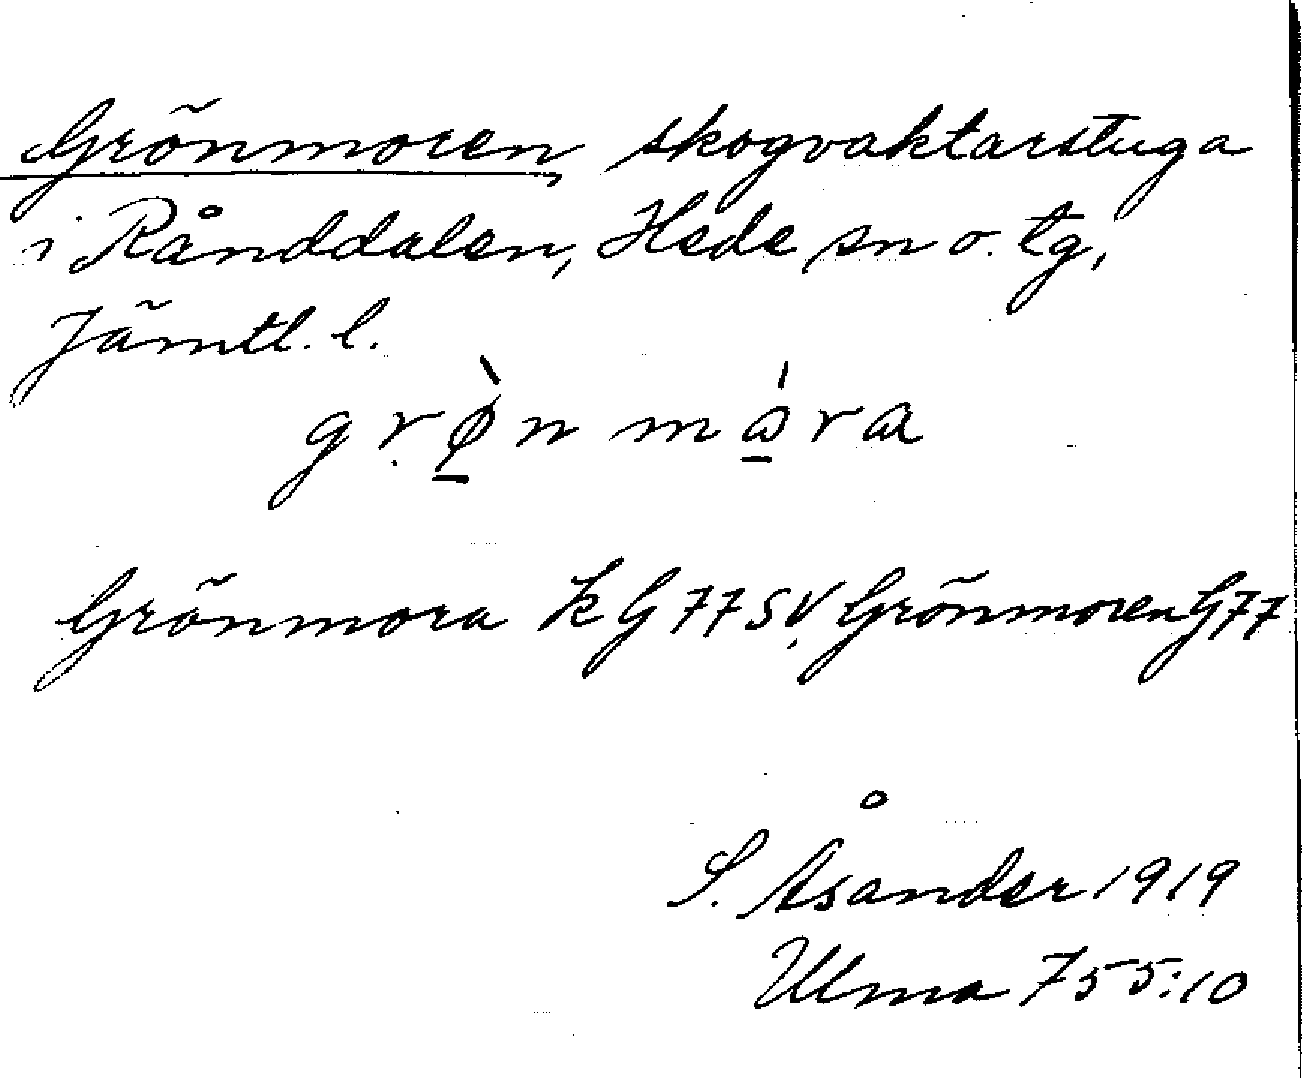 Grönmoren, skogvaktarstuga
i Rånddalen, Hede sn o. tg,
Jämtl. l.
grø̀nmɷ́ra
Grönmora k G77SV, Grönmoren G77
S. Åsander 1919
Ulma 755:10